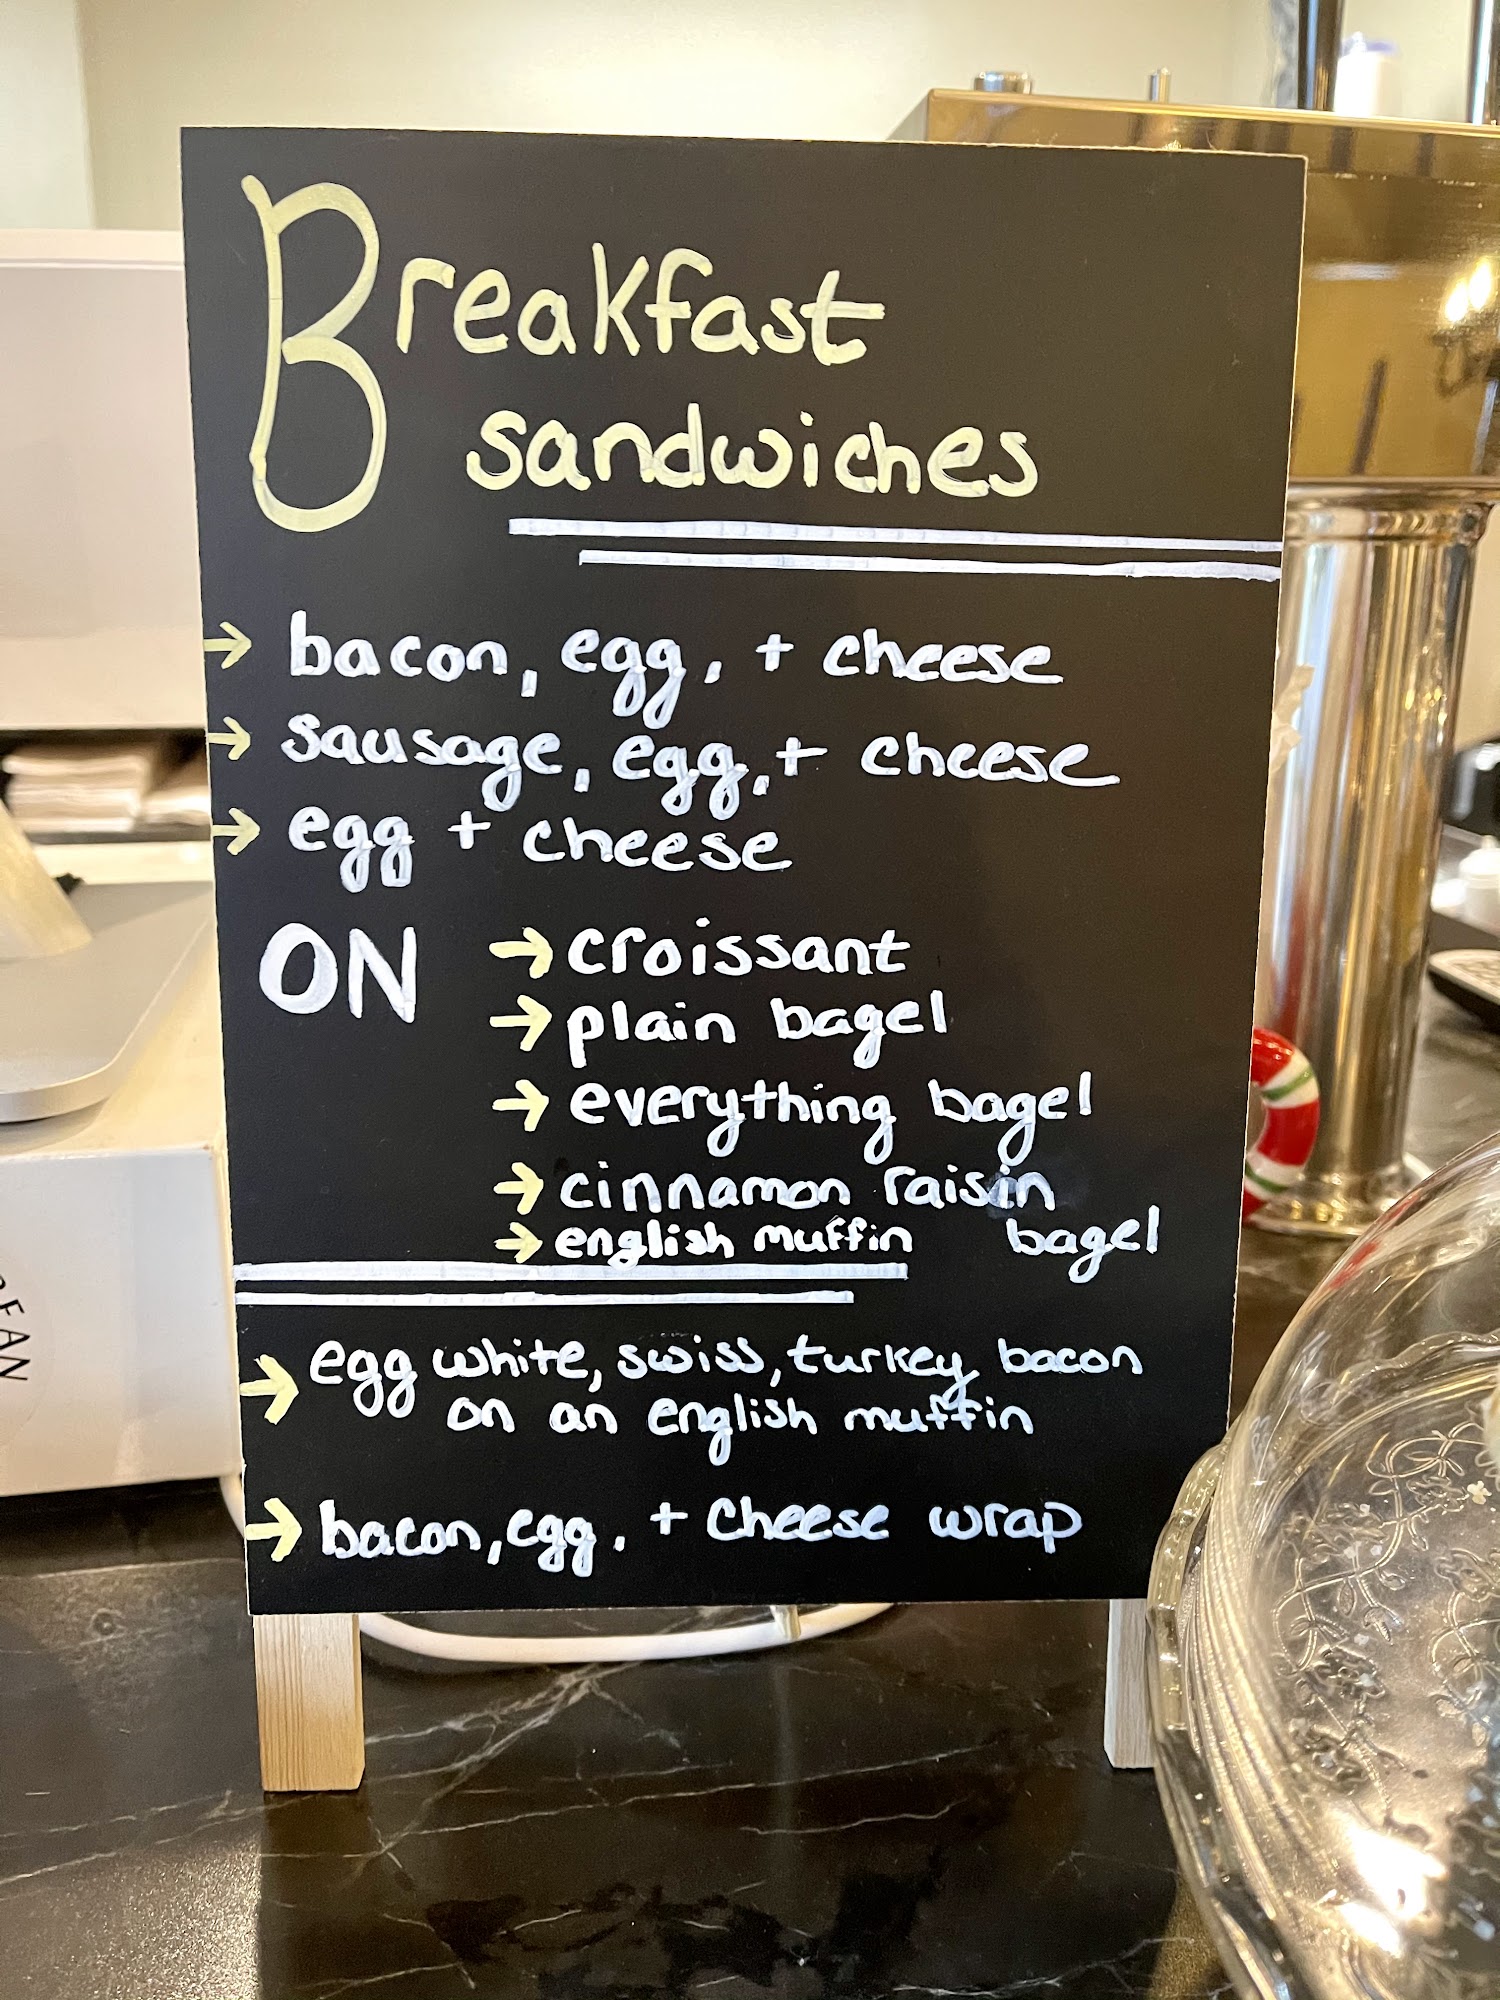 Breakfast
sandwiches
→ bacon, egg, + cheese
→ sausage, egg, + cheese
→ egg + cheese
ON → croissant
→ plain bagel
→ everything bagel
→ cinnamon raisin
bagel
→ english muffin
→ egg white, swiss, turkey bacon
on an english muffin
→ bacon, egg, + cheese wrap